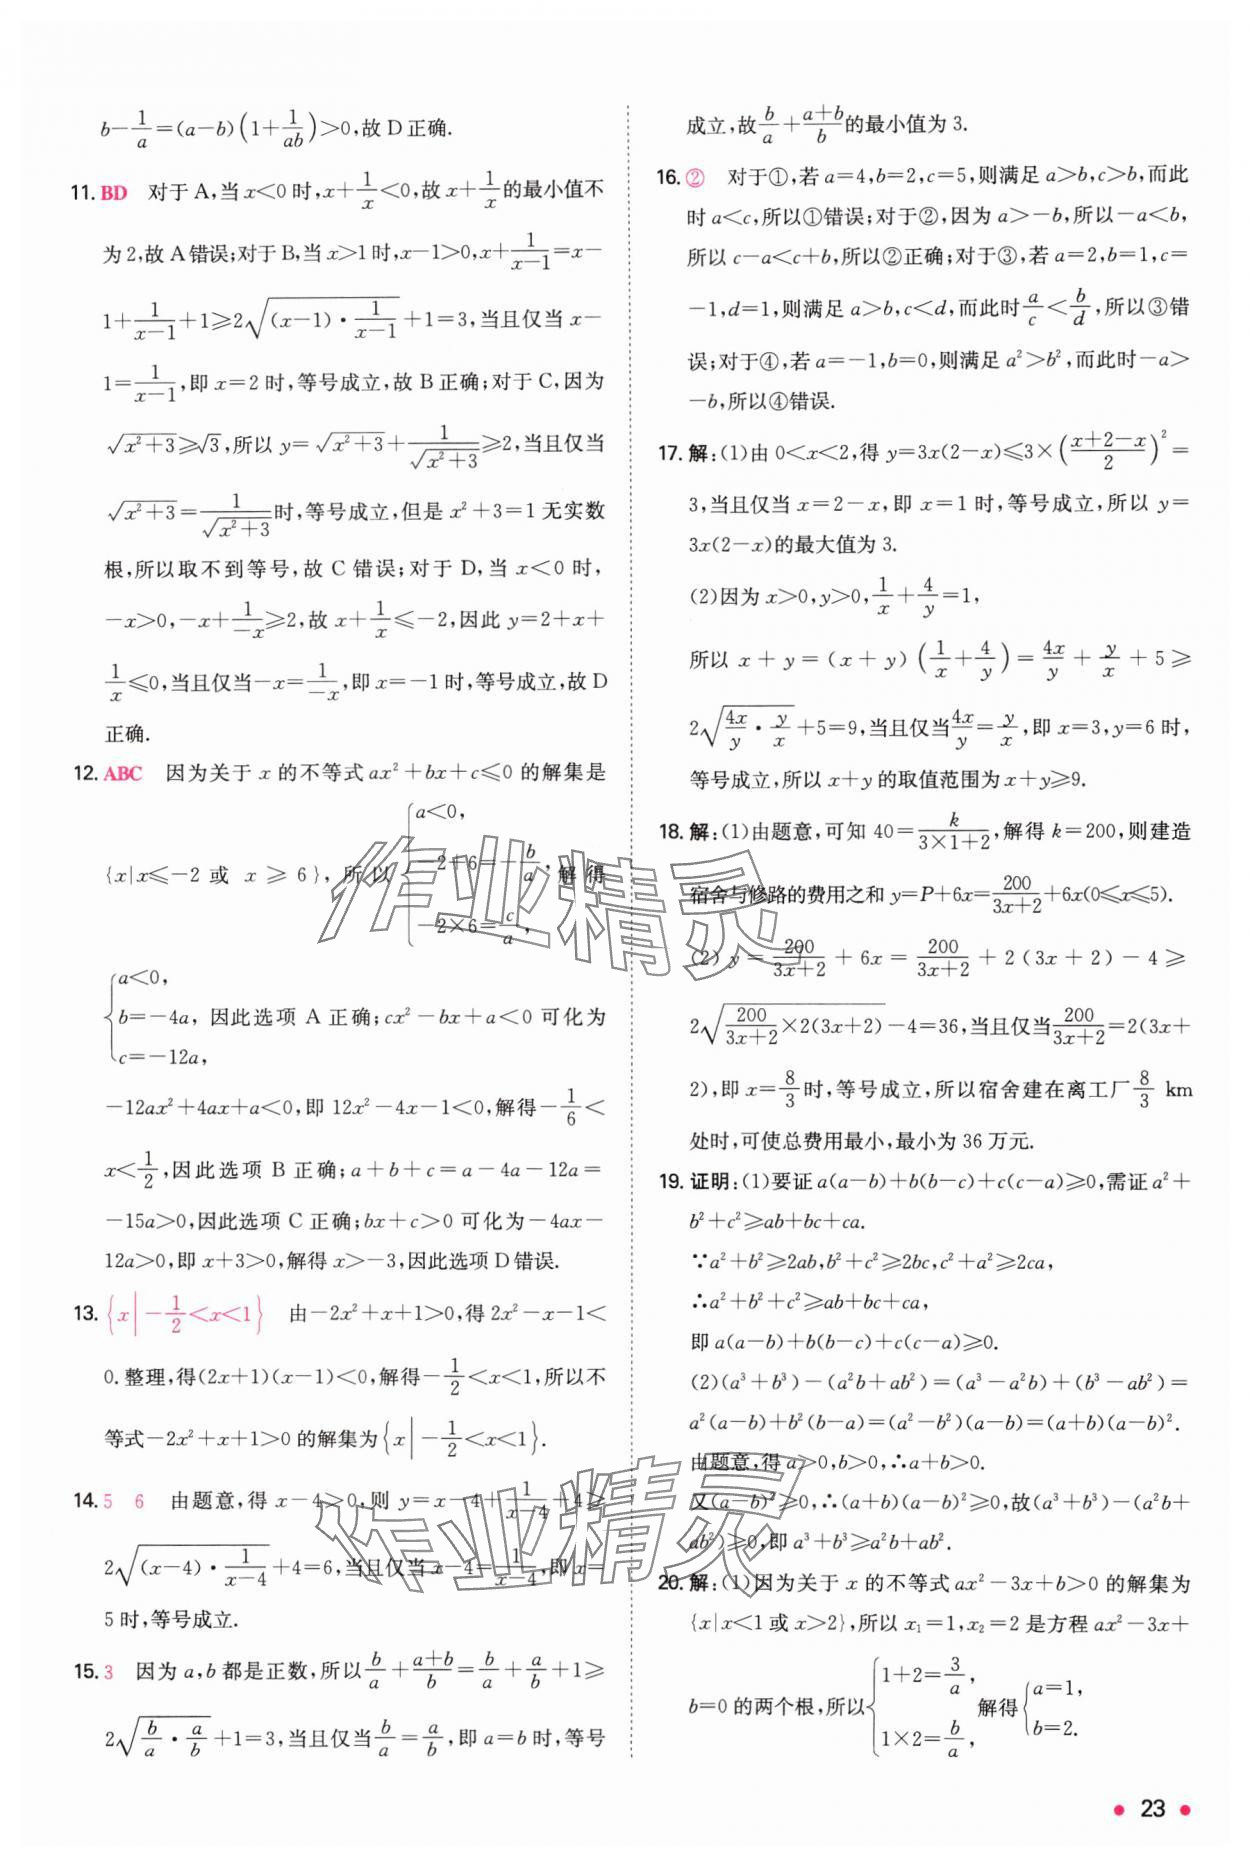 b-1/a=(a-b)(1+1/ab)>0,故 D 正确.
11. BD 对于 A,当 x<0 时,x+1/x<0,故 x+1/x的最小值不
为 2,故 A 错误;对于 B,当 x>1 时,x-1>0,x+1/(x-1)=x-
1+1/(x-1)+1≥2√((x-1)·1/(x-1))+1=3,当且仅当 x-
1=1/(x-1),即 x=2 时,等号成立,故 B 正确;对于 C,因为
√(x²+3)≥√3,所以 y=√(x²+3)+1/√(x²+3)≥2,当且仅当
√(x²+3)=1/√(x²+3)时,等号成立,但是 x²+3=1 无实数
根,所以取不到等号,故 C 错误;对于 D,当 x<0 时,
-x>0,-x+1/(-x)≥2,故 x+1/x≤-2,因此 y=2+x+
1/x≤0,当且仅当-x=1/(-x),即 x=-1 时,等号成立,故 D
正确.
12. ABC 因为关于 x 的不等式 ax²+bx+c≤0 的解集是
{x|x≤-2 或 x≥6},所以{a<0, -2+6=-b/a, -2×6=c/a, 解得
{a<0, b=-4a, c=-12a, 因此选项 A 正确;cx²-bx+a<0 可化为
-12ax²+4ax+a<0,即 12x²-4x-1<0,解得-1/6<
x<1/2,因此选项 B 正确;a+b+c=a-4a-12a=
-15a>0,因此选项 C 正确;bx+c>0 可化为-4ax-
12a>0,即 x+3>0,解得 x>-3,因此选项 D 错误.
13. {x|-1/2<x<1} 由-2x²+x+1>0,得 2x²-x-1<
0.整理,得(2x+1)(x-1)<0,解得-1/2<x<1,所以不
等式-2x²+x+1>0 的解集为{x|-1/2<x<1}.
14. 5 6 由题意,得 x-4>0,则 y=x-4+1/(x-4)+4≥
2√((x-4)·1/(x-4))+4=6,当且仅当 x-4=1/(x-4),即 x=
5 时,等号成立.
15. 3 因为 a,b 都是正数,所以b/a+(a+b)/b=b/a+a/b+1≥
2√(b/a·a/b)+1=3,当且仅当b/a=a/b,即 a=b 时,等号
成立,故b/a+(a+b)/b的最小值为 3.
16. ② 对于①,若 a=4,b=2,c=5,则满足 a>b,c>b,而此
时 a<c,所以①错误;对于②,因为 a>-b,所以-a<b,
所以 c-a<c+b,所以②正确;对于③,若 a=2,b=1,c=
-1,d=1,则满足 a>b,c<d,而此时a/c<b/d,所以③错
误;对于④,若 a=-1,b=0,则满足 a²>b²,而此时-a>
-b,所以④错误.
17. 解:(1)由 0<x<2,得 y=3x(2-x)≤3×((x+2-x)/2)²=
3,当且仅当 x=2-x,即 x=1 时,等号成立,所以 y=
3x(2-x)的最大值为 3.
(2)因为 x>0,y>0,1/x+4/y=1,
所以 x+y=(x+y)(1/x+4/y)=4x/y+y/x+5≥
2√(4x/y·y/x)+5=9,当且仅当4x/y=y/x,即 x=3,y=6 时,
等号成立,所以 x+y 的取值范围为 x+y≥9.
18. 解:(1)由题意,可知 40=k/(3×1+2),解得 k=200,则建造
宿舍与修路的费用之和 y=P+6x=200/(3x+2)+6x(0≤x≤5).
(2) y=200/(3x+2)+6x=200/(3x+2)+2(3x+2)-4≥
2√(200/(3x+2)×2(3x+2))-4=36,当且仅当200/(3x+2)=2(3x+
2),即 x=8/3时,等号成立,所以宿舍建在离工厂8/3 km
处时,可使总费用最小,最小为 36 万元.
19. 证明:(1)要证 a(a-b)+b(b-c)+c(c-a)≥0,需证 a²+
b²+c²≥ab+bc+ca.
∵a²+b²≥2ab,b²+c²≥2bc,c²+a²≥2ca,
∴a²+b²+c²≥ab+bc+ca,
即 a(a-b)+b(b-c)+c(c-a)≥0.
(2)(a³+b³)-(a²b+ab²)=(a³-a²b)+(b³-ab²)=
a²(a-b)+b²(b-a)=(a²-b²)(a-b)=(a+b)(a-b)².
由题意,得 a>0,b>0,∴a+b>0.
又(a-b)²≥0,∴(a+b)(a-b)²≥0,故(a³+b³)-(a²b+
ab²)≥0,即 a³+b³≥a²b+ab².
20. 解:(1)因为关于 x 的不等式 ax²-3x+b>0 的解集为
{x|x<1 或 x>2},所以 x₁=1,x₂=2 是方程 ax²-3x+
b=0 的两个根,所以{1+2=3/a, 1×2=b/a, 解得{a=1, b=2.
23
作业精灵
作业精灵